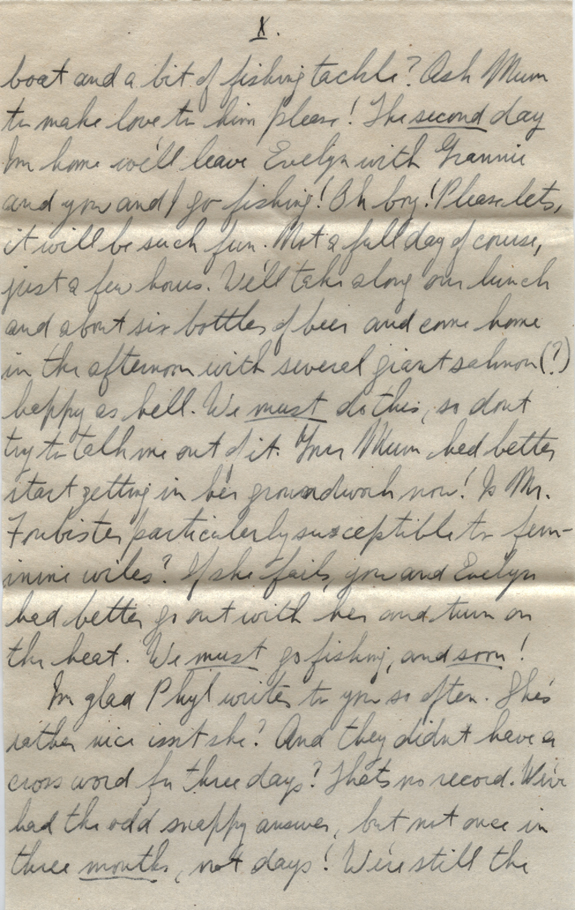 X.
boat and a bit of fishing tackle? Ask Mum
to make love to him please! The second day
Im home we'll leave Evelyn with Grannie
and you and I go fishing! Oh boy! Please lets,
it will be such fun. Not a full day of course,
just a few hours. We'll take along our lunch
and about six bottles of beer and come home
in the afternoon with several giant salmon(?)
happy as hell. We must do this, so dont
try to talk me out of it. Your Mum had better
start getting in her groundwork now! Is Mr.
Foubister particularly susceptible to fem-
inine wiles? If she fails, you and Evelyn
had better go out with her and turn on
the heat. We must go fishing, and soon!
Im glad Phyl writes to you so often. She's
rather nice isnt she? And they didnt have a
cross word for three days? Thats no record. We've
had the odd snappy answer, but not once in
three months, not days! We're still the